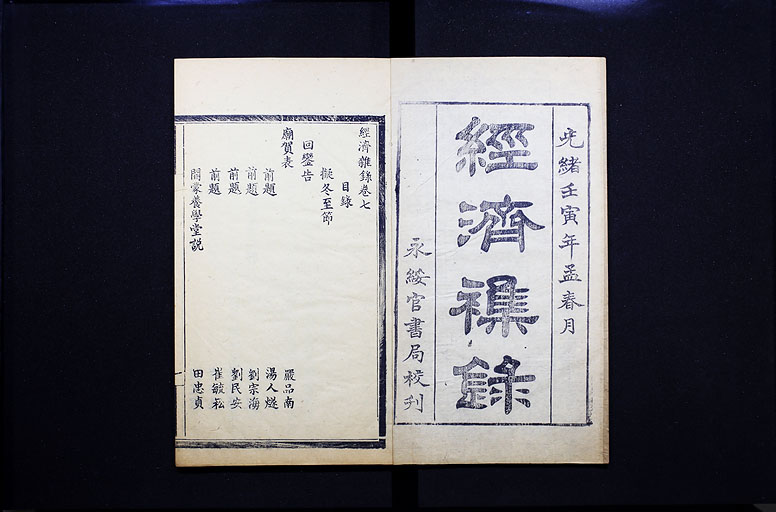 光緒壬寅年孟春月
經濟襍錄
永綏官書局校刊
經濟雜錄卷七
目錄
擬冬至節
回鑾告
廟賀表
嚴品南
前題
湯人燧
前題
劉宗海
前題
劉民安
前題
崔毓崧
閤蒙養學堂説
田忠貞